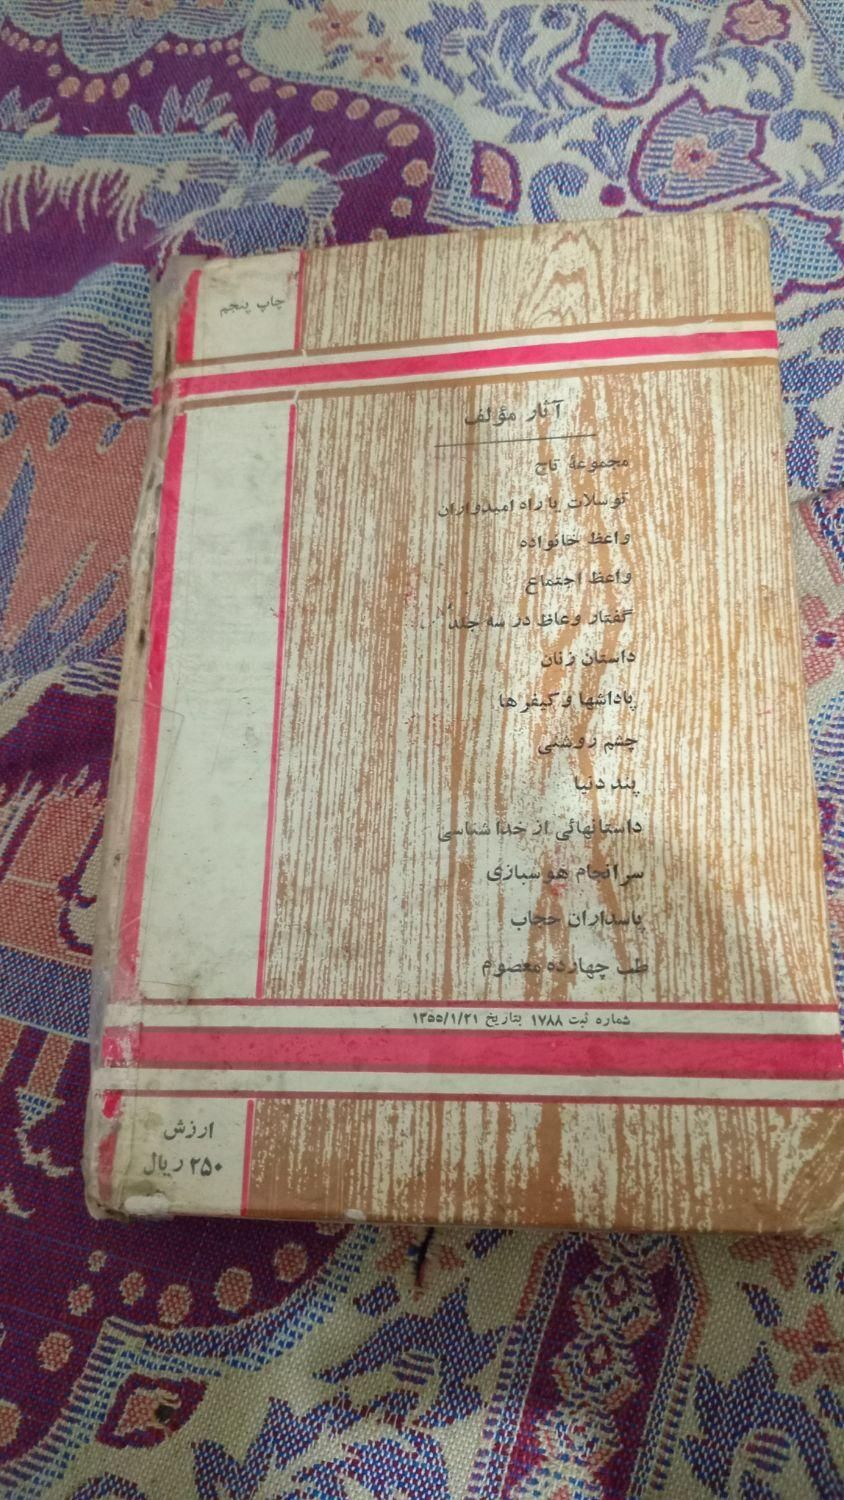 چاپ پنجم
آثار مؤلف
مجموعهٔ تاج
توسلات یا راه امیدواران
واعظ خانواده
واعظ اجتماع
گفتار وعاظ در سه جلد
داستان زنان
پاداشها و کیفرها
چشم روشنی
پند دنیا
داستانهائی از خداشناسی
سرانجام هوسبازی
پاسداران حجاب
طب چهارده معصوم
شماره ثبت ۱۷۸۸ بتاریخ ۱۳۵۵/۱/۲۱
ارزش
۲۵۰ ریال